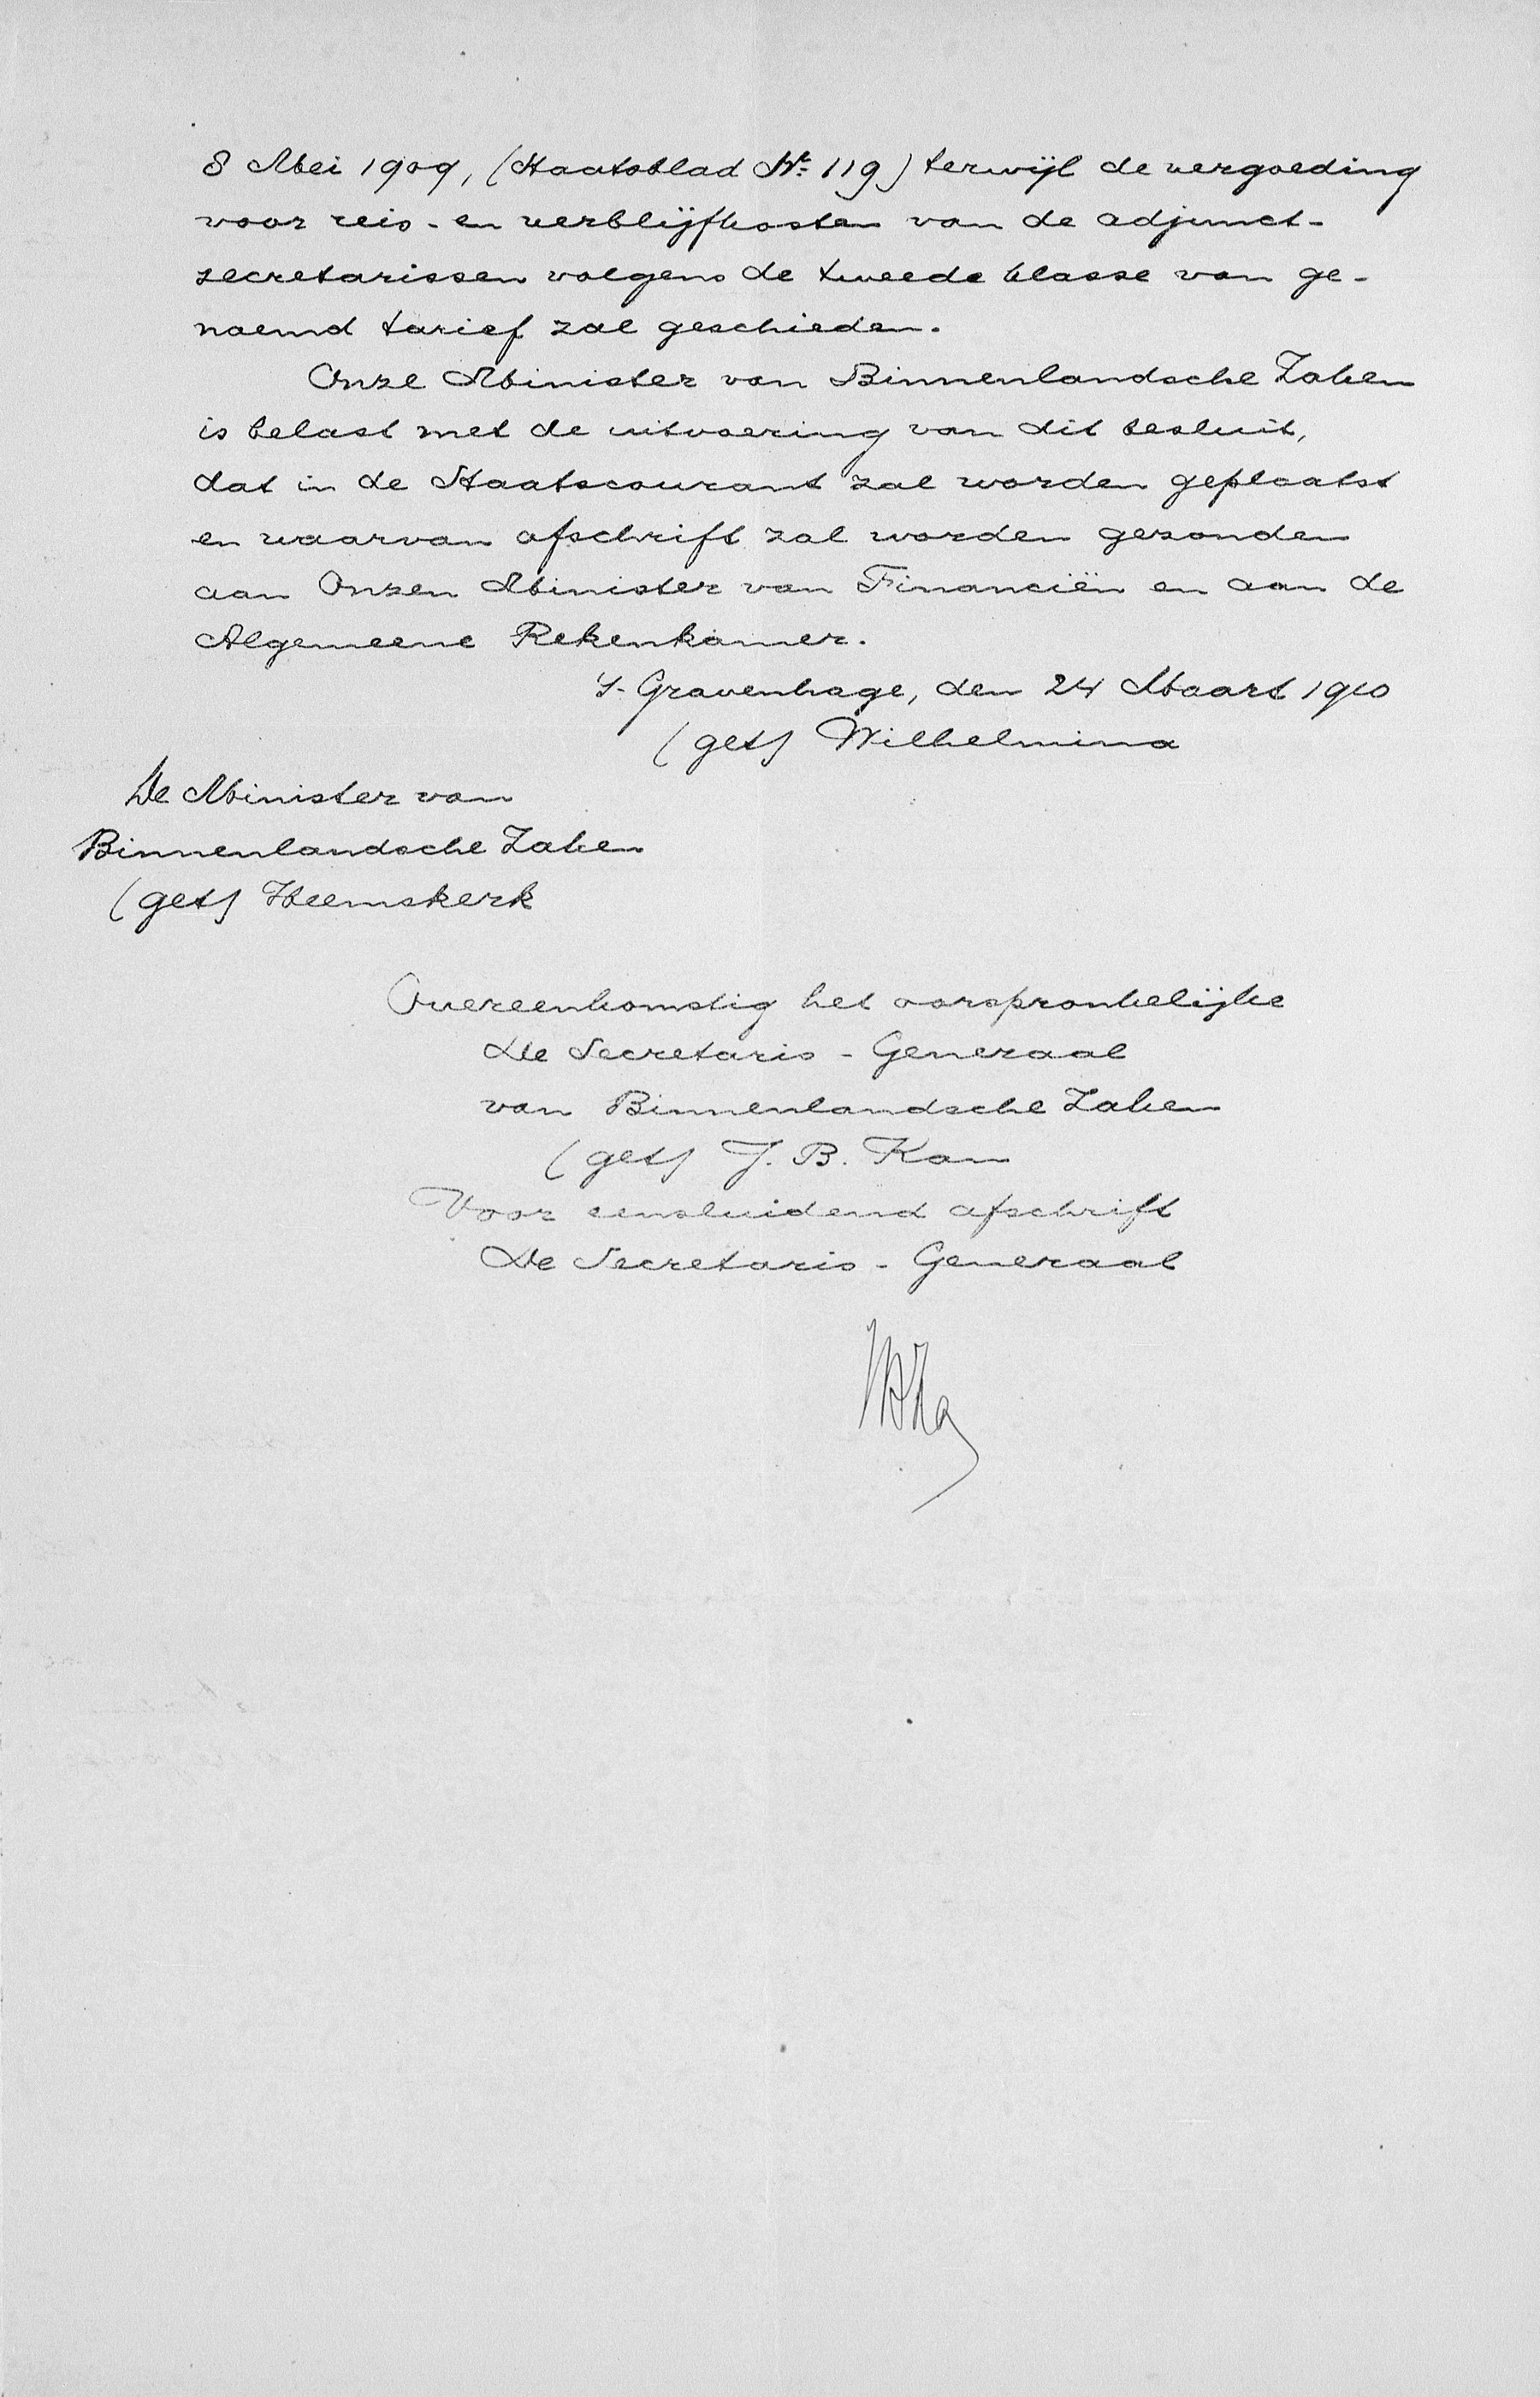 8 Mei 1909, (Staatsblad No. 119) terwijl de vergoeding
voor reis- en verblijfkosten van de adjunct-
secretarissen volgens de tweede klasse van ge-
noemd tarief zal geschieden.
Onze Minister van Binnenlandsche Zaken
is belast met de uitvoering van dit besluit,
dat in de Staatscourant zal worden geplaatst
en waarvan afschrift zal worden gezonden
aan Onzen Minister van Financiën en aan de
Algemeene Rekenkamer.
's-Gravenhage, den 24 Maart 1910
(get) Wilhelmina
De Minister van
Binnenlandsche Zaken
(get) Heemskerk
Overeenkomstig het oorspronkelijke
De Secretaris-Generaal
van Binnenlandsche Zaken
(get) J. B. Kan
Voor eensluidend afschrift
De Secretaris-Generaal